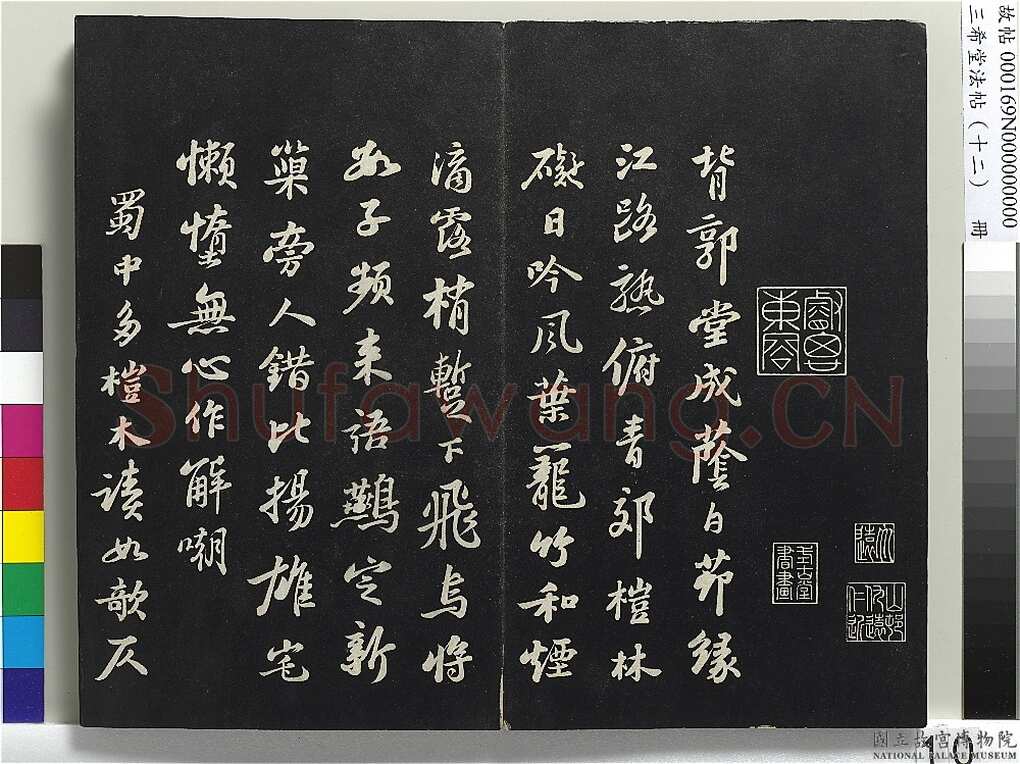 背郭堂成蔭白茆緣
江路熟俯青郊榿林
礙日吟風葉籠竹和煙
滴露梢暫下飛烏將
數子頻來語鷰定新
巢旁人錯比揚雄宅
懶惰無心作解嘲
蜀中多榿木讀如欹仄
故帖 000169N000000000
三希堂法帖(十二) 冊
Shufawang.CN
10
國立故宮博物院
NATIONAL PALACE MUSEUM